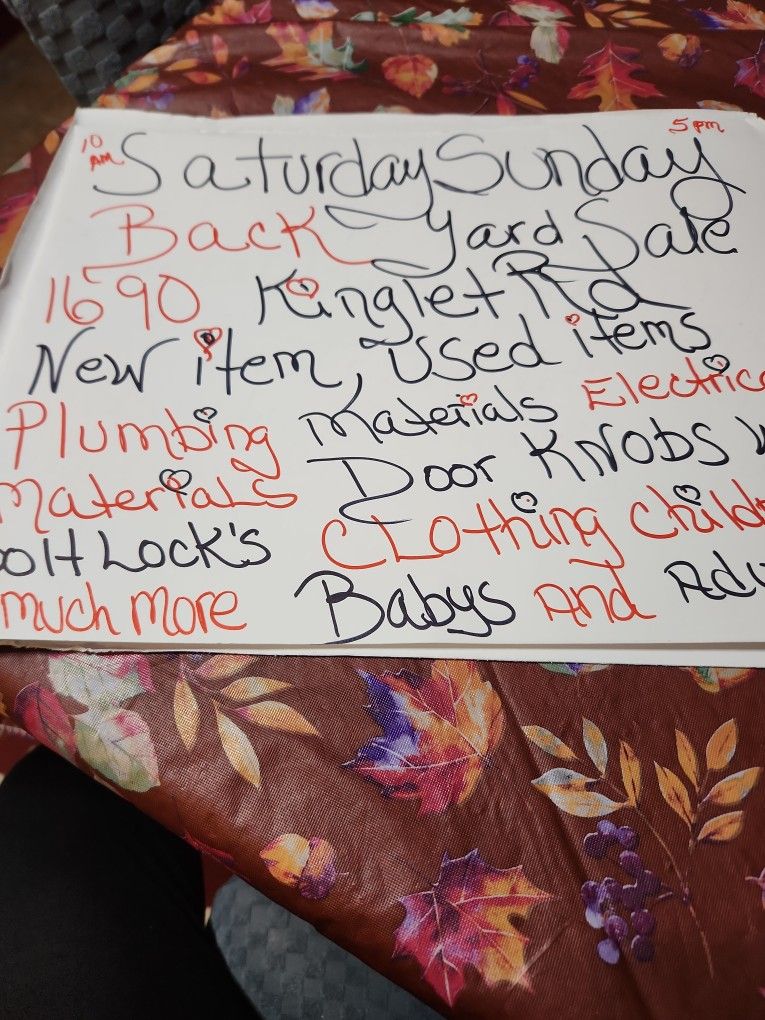 10 AM Saturday Sunday 5 pm
Back Yard Sale
1690 Kinglet Rd
New item, Used items
Plumbing Materials Electric
Materials Door KNOBS
Lock's Clothing
much more Babys And